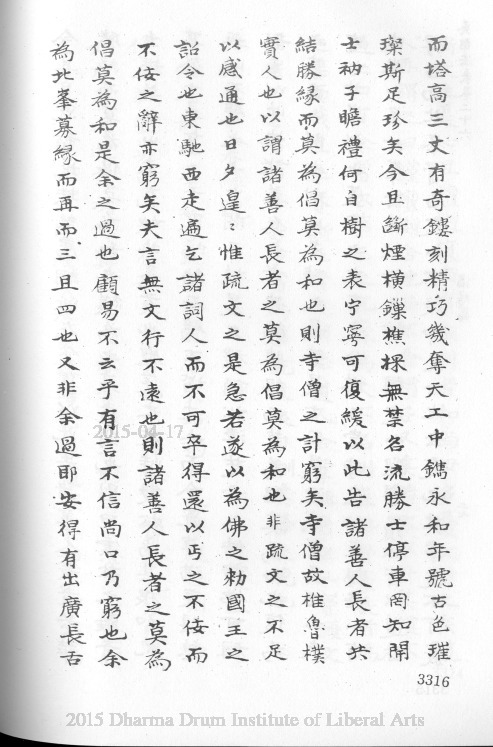 而塔高三丈有奇鏤刻精巧幾奪天工中鐫永和年號古色璀
璨斯足珍矣今且斷煙橫鏁樵採無禁名流勝士停車罔知開
士衲子瞻禮何自樹之表宁寧可復緩以此告諸善人長者共
結勝緣而莫為倡莫為和也則寺僧之計窮矣寺僧故椎魯樸
實人也以謂諸善人長者之莫為倡莫為和也非疏文之不足
以感通也日夕遑:惟疏文之是急若遂以為佛之勑國王之
詔令也東馳西走遍乞諸詞人而不可卒得還以丐之不佞而
不佞之辭亦窮矣夫言無文行不遠也則諸善人長者之莫為
倡莫為和是余之過也顧易不云乎有言不信尚口乃窮也余
為北峯募緣而再而三且四也又非余過耶安得有出廣長舌
3316
2015-04-17
2015 Dharma Drum Institute of Liberal Arts